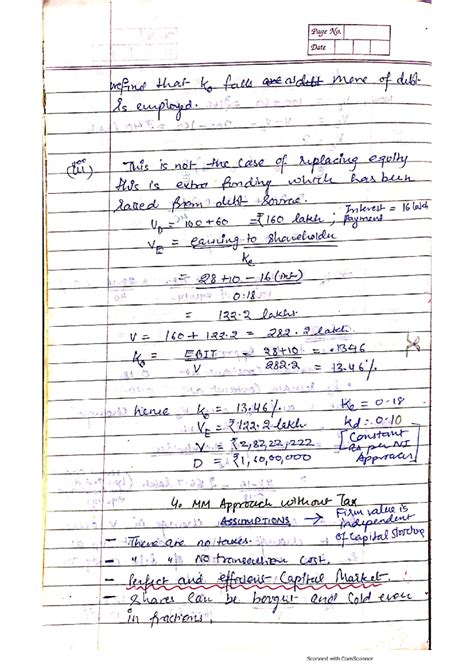 Page No.
Date
we find that k₀ falls are as debt more of debt
is employed.
(iii) This is not the case of replacing equity
this is extra funding which has been
raised from debt source.
V_D = 100+60 = ₹160 lakh ; Interest = 16 lakh
payment
V_E = earning to shareholder
Ke
= 28+10 - 16 (int)
0.18
= 122.2 lakhs
V = 160 + 122.2 = 282.2 lakh
k₀ = EBIT = 28+10 = .1346
V 282.2 = 13.46%
hence k₀ = 13.46% Ke = 0.18
V_E = ₹122.2 lakh kd = 0.10
V = ₹2,82,22,222 [Constant
D = ₹1,60,00,000 as per NI
Approach]
4. MM Approach without Tax
ASSUMPTIONS → Firm value is
independent
of Capital Structure
- There are no taxes.
- " " NO transaction cost.
- Perfect and efficient Capital Market.
- Shares can be bought and sold even
in fractions.
Scanned with CamScanner